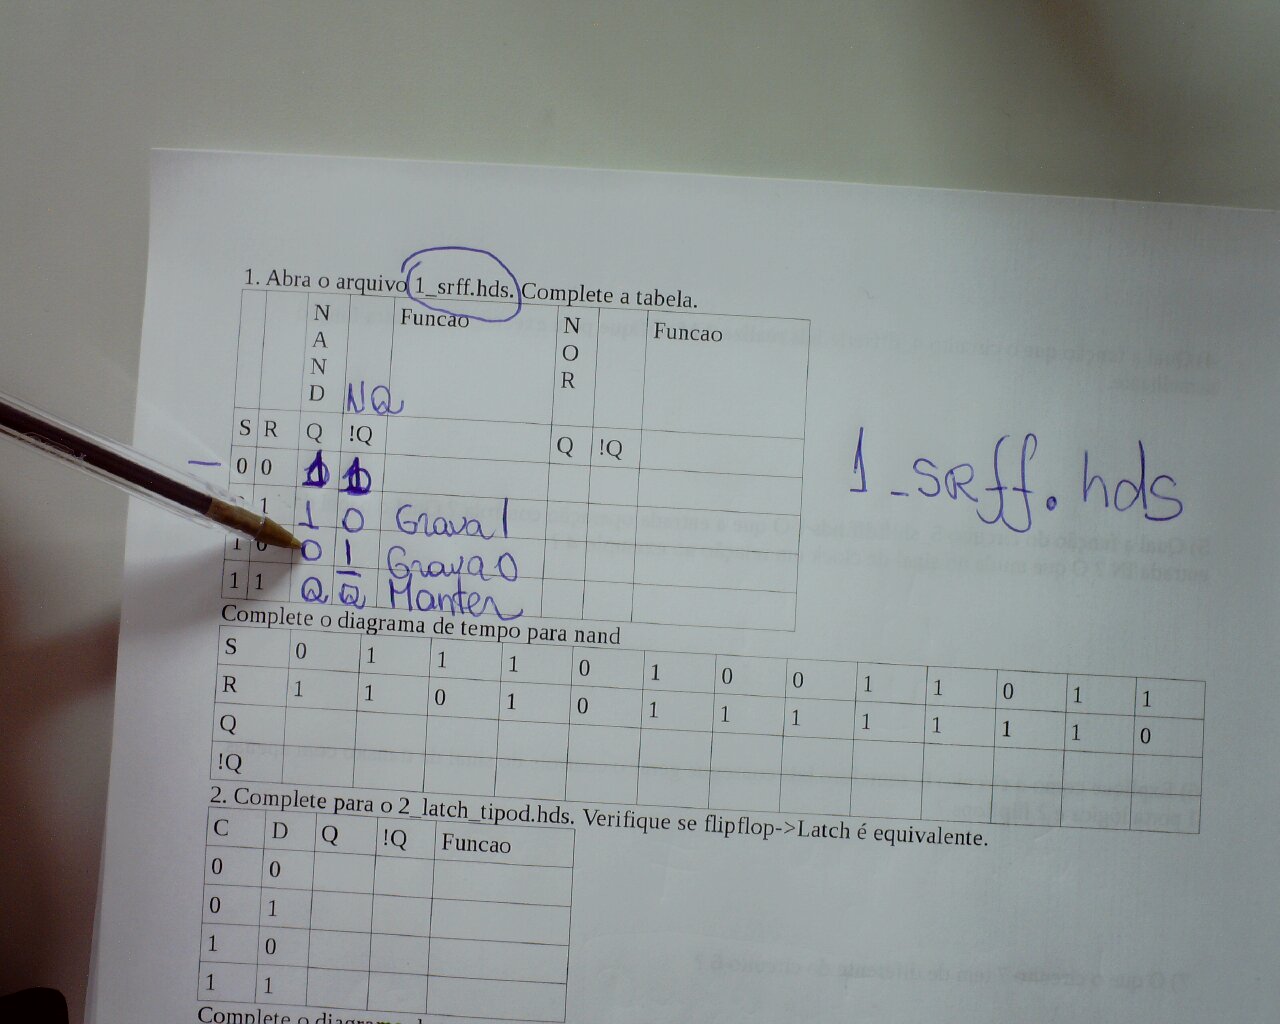 1. Abra o arquivo 1_srff.hds. Complete a tabela.
NAND Funcao NOR Funcao
NQ
S R Q !Q Q !Q
0 0 1 1
1 1 0 Grava 1
1 0 0 1 Grava 0
1 1 Q Q̅ Manter
1_SRff.hds
Complete o diagrama de tempo para nand
S 0 1 1 1 0 1 0 0 1 1 0 1 1
R 1 1 0 1 0 1 1 1 1 1 1 1 0
Q
!Q
2. Complete para o 2_latch_tipod.hds. Verifique se flipflop->Latch é equivalente.
C D Q !Q Funcao
0 0
0 1
1 0
1 1
Complete o